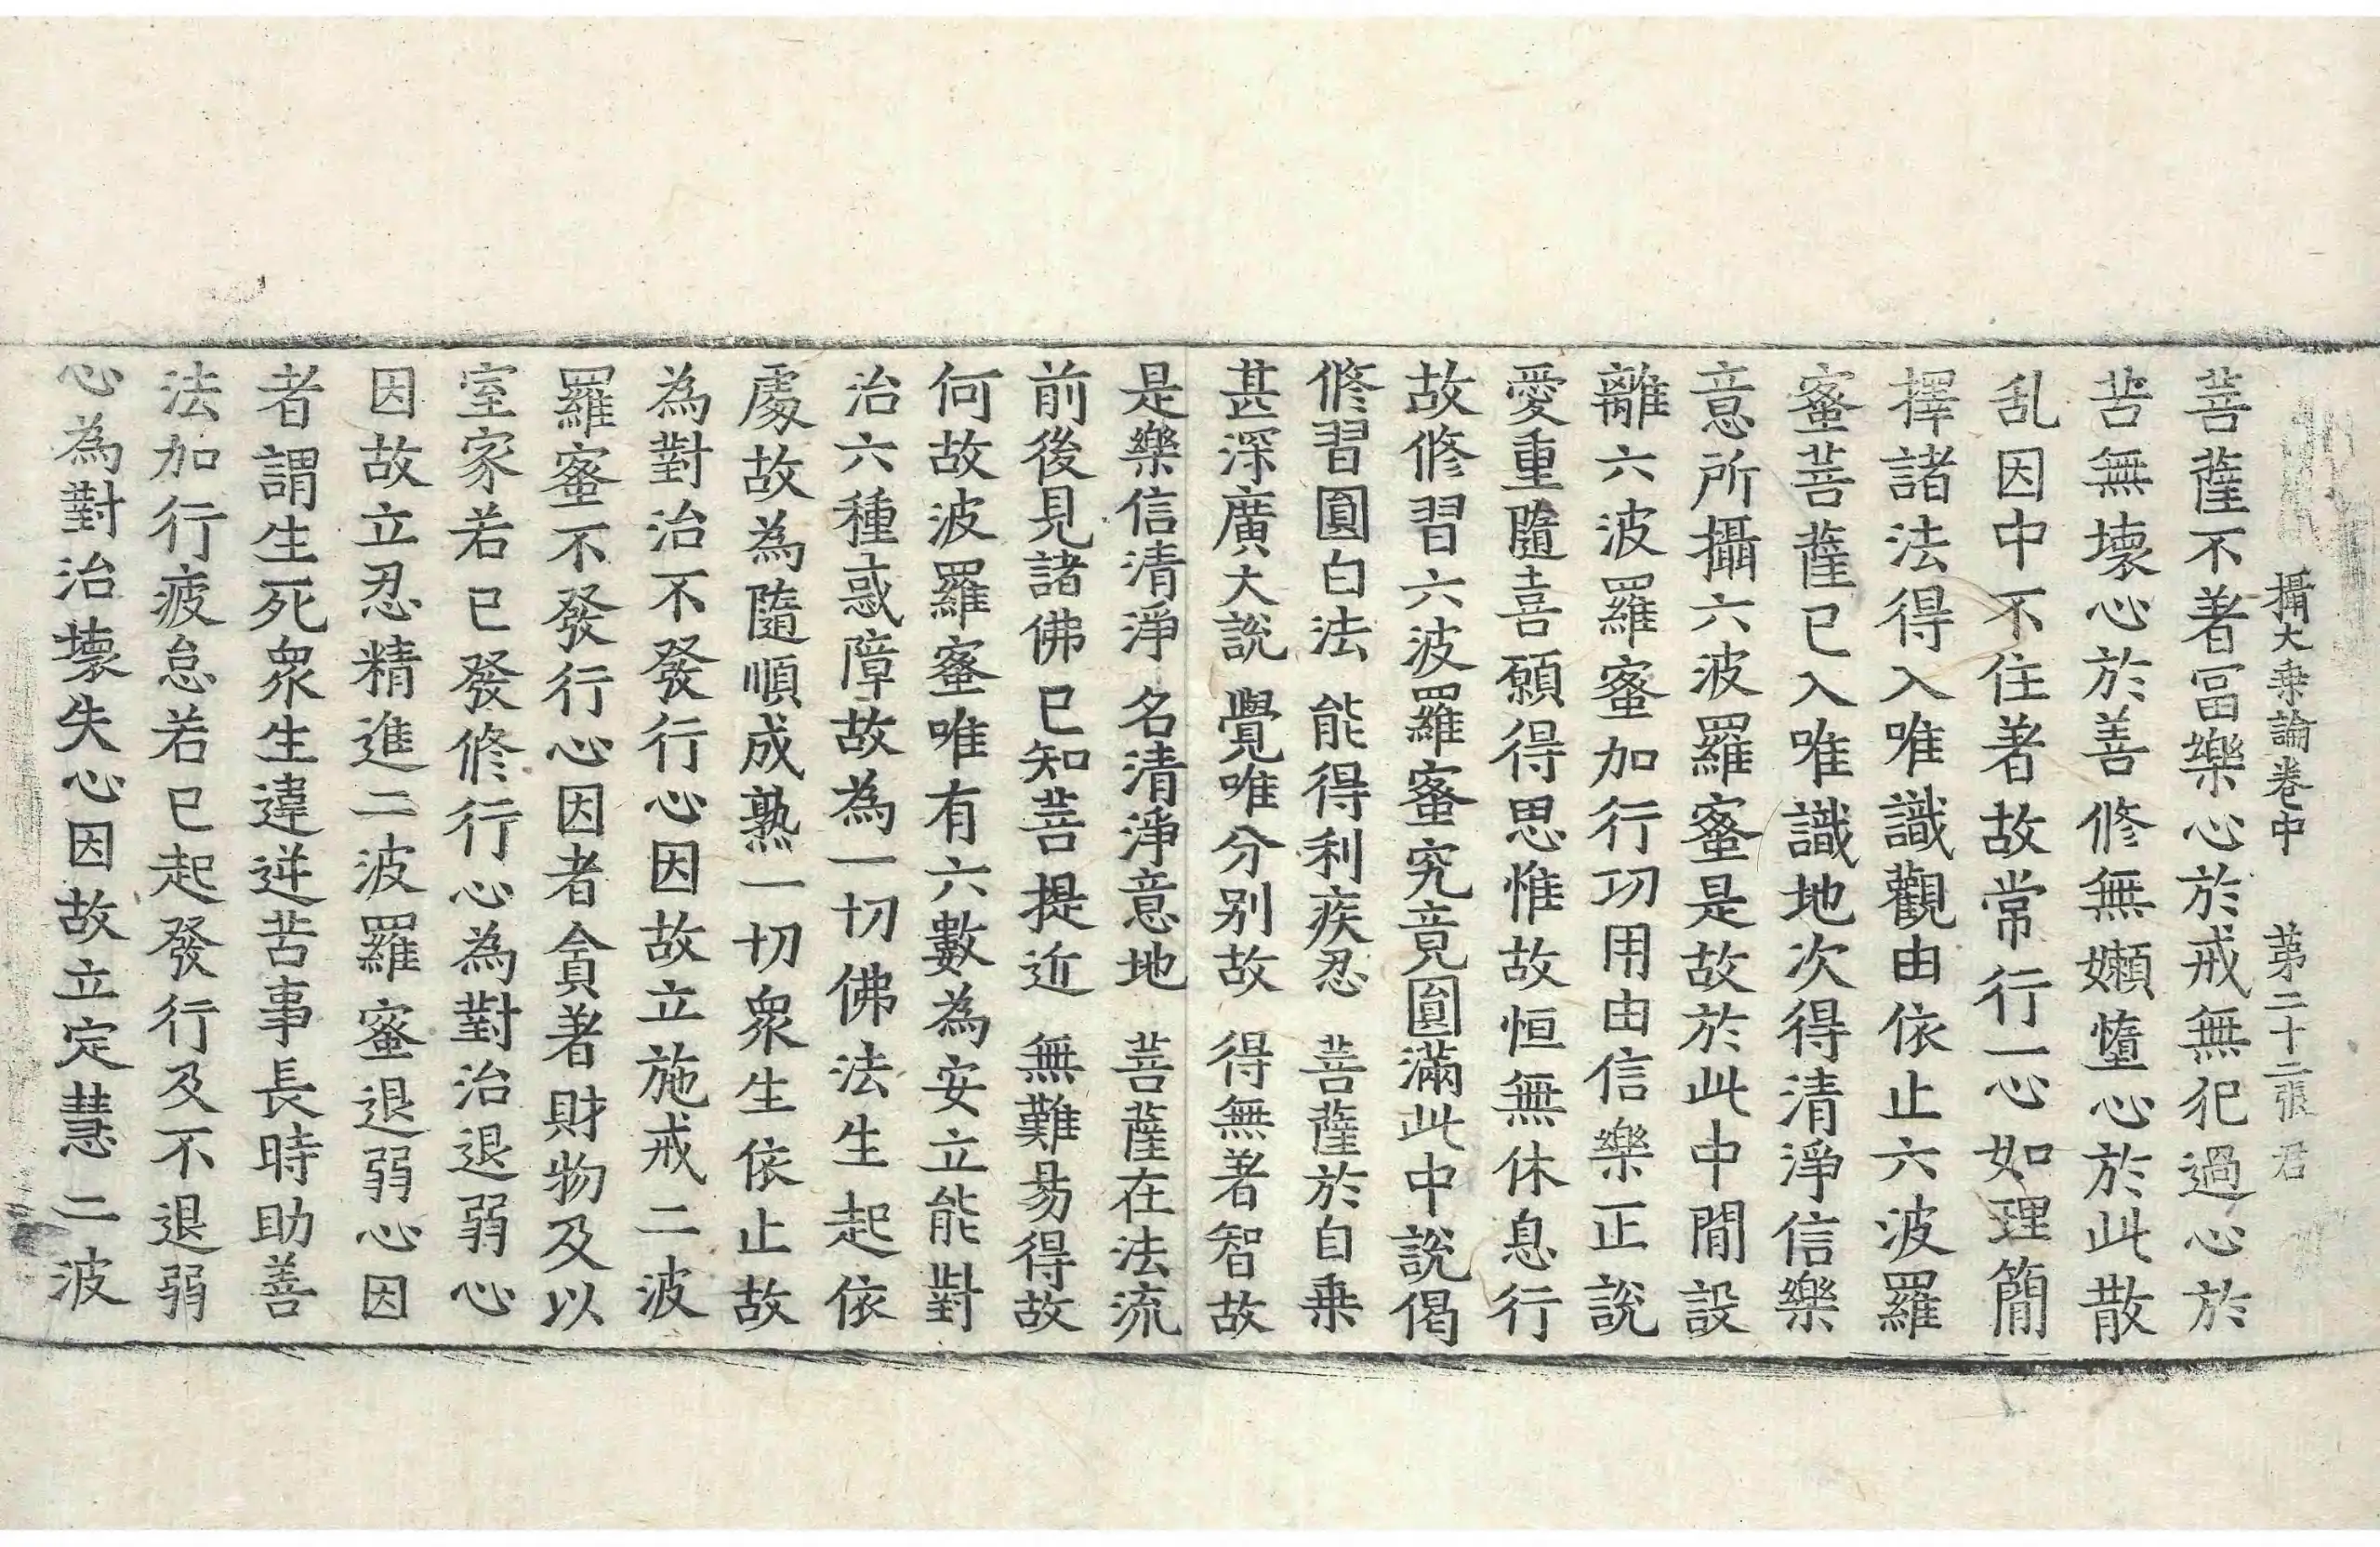 攝大乗論卷中　第二十二張　君
菩薩不著冨樂心於戒無犯過心於
苦無壞心於善修無嬾墮心於此散
乱因中不住著故常行一心如理簡
擇諸法得入唯識觀由依止六波羅
蜜菩薩已入唯識地次得清淨信樂
意所攝六波羅蜜是故於此中間設
離六波羅蜜加行功用由信樂正說
愛重隨喜願得思惟故恒無休息行
故修習六波羅蜜究竟圓滿此中說偈
修習圓白法　能得利疾忍　菩薩於自乗
甚深廣大說　覺唯分別故　得無著智故
是樂信清淨　名清淨意地　菩薩在法流
前後見諸佛　已知菩提近　無難易得故
何故波羅蜜唯有六數為安立能對
治六種惑障故為一切佛法生起依
處故為隨順成熟一切衆生依止故
為對治不發行心因故立施戒二波
羅蜜不發行心因者貪著財物及以
室家若已發修行心為對治退弱心
因故立忍精進二波羅蜜退弱心因
者謂生死衆生違逆苦事長時助善
法加行疲怠若已起發行及不退弱
心為對治壞失心因故立定慧二波